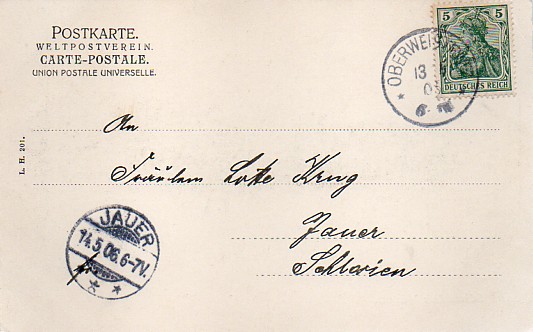 POSTKARTE.
WELTPOSTVEREIN.
CARTE-POSTALE.
UNION POSTALE UNIVERSELLE.
5 5
DEUTSCHES REICH
13
6-
L. H. 201.
An
Fräulein Lotte Krug
Jauer
Schlesien
JAUER
14.5.06.6-7V.